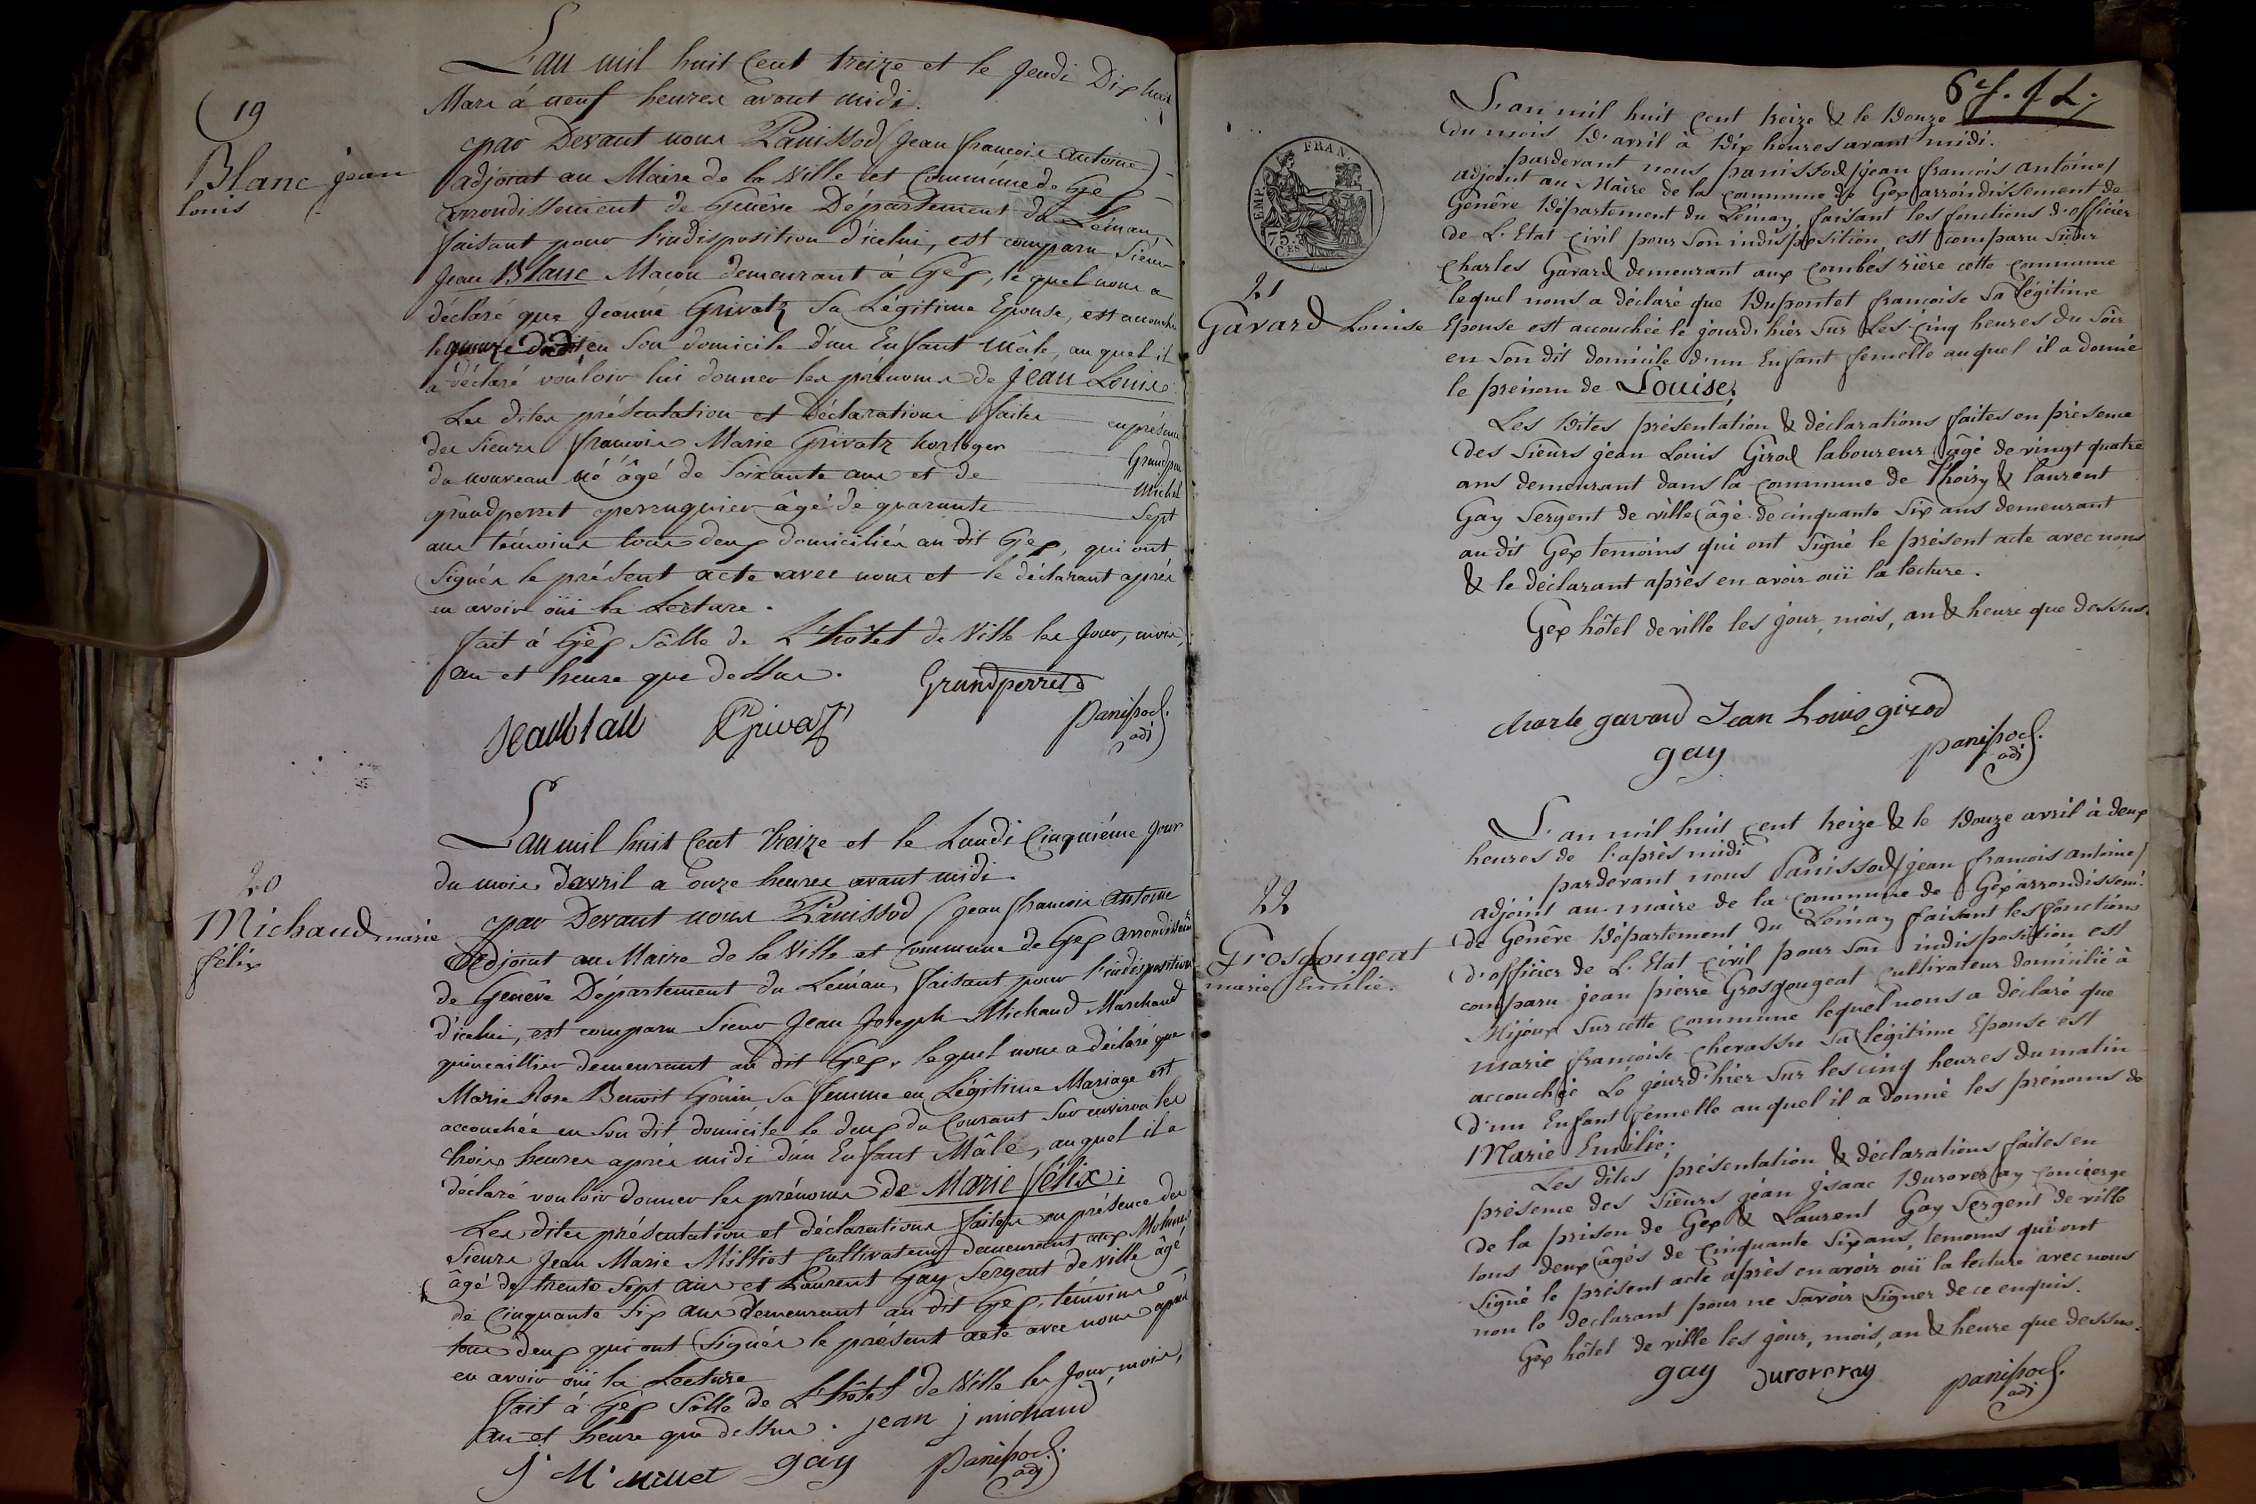 19
Blanc jean
louis
L'an mil huit Cent treize et le Jeudi Dix huit
Mars á neuf heures avant midi.
par Devant nous Panissod (Jean françois antoine)
adjoint au Maire de la Ville et Commune de Gex
arrondissement de Genêve Département du Léman,
faisant pour l'indisposition d'icelui, est comparu Sieur
Jean Blanc Maçon demeurant á Gex, le quel nous a
déclaré que Jeanne Grivatz Sa Légitime Epouse, est accouchée
le quinze dudit en Son domicile d'un Enfant Mâle, au quel il
a déclaré vouloir lui donner les prénoms de Jean Louis
Les dites présentation et Déclarations faites en présence
des Sieurs françois Marie Grivatz horloger Grandpere
du nouveau né âgé de Soixante ans et de Michel
grandperret perruquier âgé de quarante Sept
ans témoins tous deux domiciliés au dit Gex, qui ont
Signés le présent acte avec nous et le déclarant aprés
en avoir oüi la Lecture.
fait á Gex Sâlle de L'hôtel de Ville les Jour, mois,
an et heure que dessus.
Grandperret
Jean blan
Grivatz
panissod.
adj
20
Michaud marie
félix
L'an mil huit Cent Treize et le Lundi Cinquiéme Jour
du mois d'avril a onze heures avant midi.
par Devant nous Panissod (Jean francois antoine
Adjoint au Maire de la Ville et Commune de Gex arrondissemt
de Genêve Département du Léman, faisant pour l'indisposition
d'icelui, est comparu Sieur Jean Joseph Michaud Marchand
quincaillier demeurant au dit Gex, lequel nous a déclaré que
Marie Rose Benoit Gonin Sa femme en Légitime Mariage est
accouchée en Son dit domicile le deux du Courant Sur environ les
trois heures aprés midi d'un Enfant Mâle, au quel il a
déclaré vouloir donner les prénoms de Marie félix;
Les dites présentation et déclarations faites en présence des
Sieurs Jean Marie Milliet Cultivateur demeurant aux
âgé de trente Sept ans et Laurent Gay Sergent de ville âgé
de Cinquante Six ans demeurant au dit Gex, témoins
tous deux qui ont Signés le présent acte avec nous aprés
en avoir oui la Lecture
fait á Gex Sâlle de L'hôtel de Ville les Jour, mois,
an et heure que dessus. jean j michaud
J. M. gay panissod.
adj
6
21
Gavard Louise
L'an mil huit cent treize & le Douze
du mois D'avril à Dix heures avant midi.
pardevant nous panissod (jean françois antoine)
adjoint au Maire de la commune de Gex arrondissement de
Genêve Département du Léman, faisant les fonctions d'officier
de L'Etat Civil pour Son indisposition, est comparu Sieur
Charles Gavard demeurant aux combes rière cette commune
lequel nous a déclaré que Dupontet françoise Sa légitime
Epouse est accouchée le jourd'hier Sur les cinq heures du Soir
en Son dit domicile d'un Enfant femelle auquel il a donné
le prénom de Louise;
Les Dites présentation & déclarations faites en présence
des Sieurs jean Louis Girod laboureur âgé de vingt quatre
ans demeurant dans la commune de Thoiry & laurent
Gay Sergent de ville âgé de cinquante Six ans demeurant
au dit Gex temoins qui ont Signé le présent acte avec nous
& le déclarant après en avoir ouï la lecture.
Gex hôtel de ville les jour, mois, an & heure que dessus.
charle gavard Jean Louis girod
gay
panissod.
adj
22
Grosgougeat
marie Emilie.
L'an mil huit cent treize & le Douze avril à deux
heures de l'après midi
pardevant nous Panissod (jean francois antoine)
adjoint au maire de la commune de Gex arrondissemt.
de Genêve Département du Léman faisant les fonctions
d'officier de L'Etat Civil pour Son indisposition est
comparu jean pierre Grosgougeat cultivateur domicilié à
Mijoux Sur cette commune lequel nous a déclaré que
marie françoise chevassu Sa légitime Epouse est
accouchée Le jourd'hier Sur les cinq heures du matin
d'un Enfant femelle auquel il a donné les prénoms de
Marie Emilie;
Les dites présentation & déclarations faites en
présence des Sieurs jéan jsaac Duroveray concierge
de la prison de Gex & Laurent Gay Sergent de ville
tous deux âgés de cinquante Six ans, temoins qui ont
Signé le présent acte après en avoir ouï la lecture avec nous
non le declarant pour ne Savoir Signer de ce enquis.
Gex hôtel de ville les jour, mois, an & heure que dessus.
gay Duroveray
panissod.
adj
EMP FRAN
75.
CES